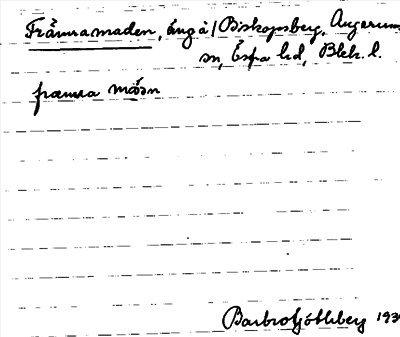 Främramaden, äng å/Biskopsberg, Augerums
sn, Östra hd, Blek. l.
fræmra måðn
Barbro Göthberg 193